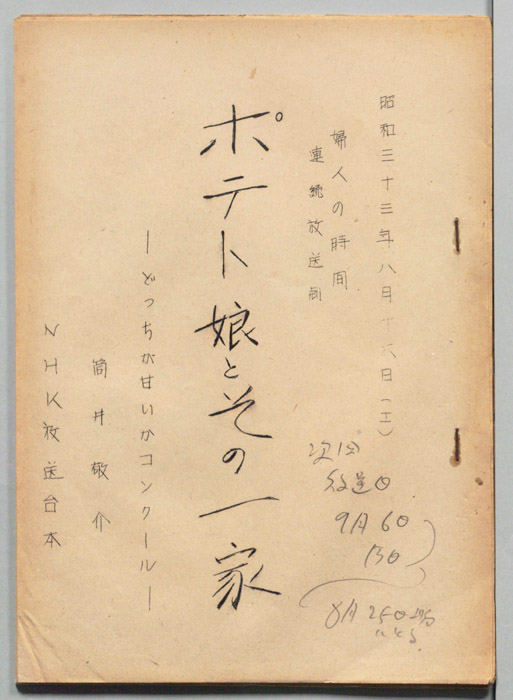 昭和三十三年八月十六日（土）
婦人の時間
連続放送劇
ポテト娘とその一家
―どっちが甘いかコンクール―
筒井敬介
NHK放送台本
次回
放送日
9月6日
13日
8月25日
とる